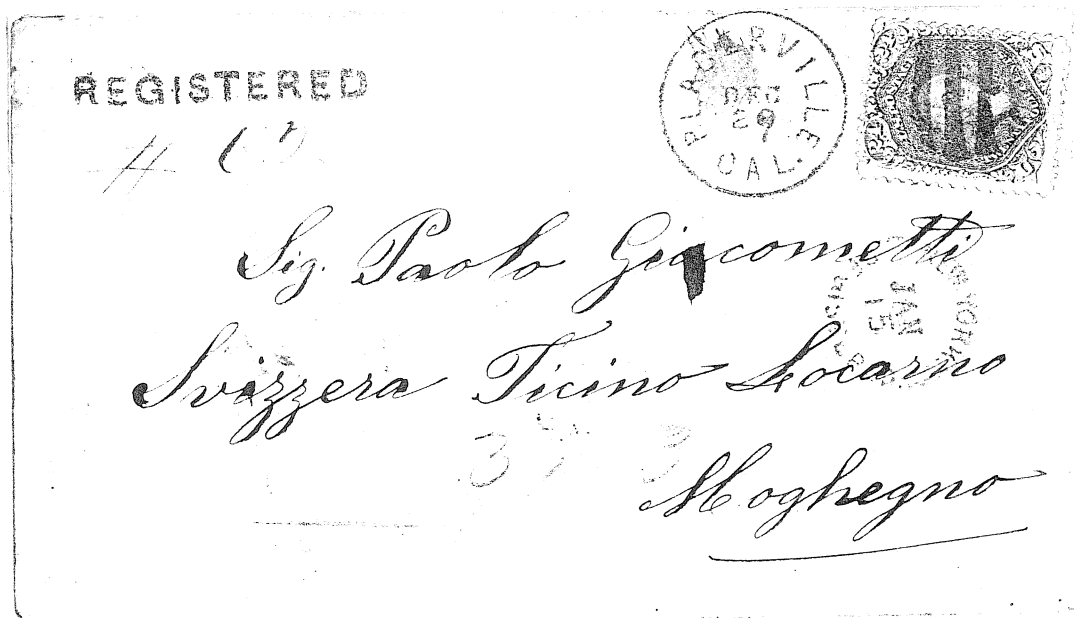 REGISTERED
PLACERVILLE
DEC
29
CAL.
Sig. Paolo Giacometti
YORK
JAN
15
Svizzera Ticino Locarno
3
Moghegno